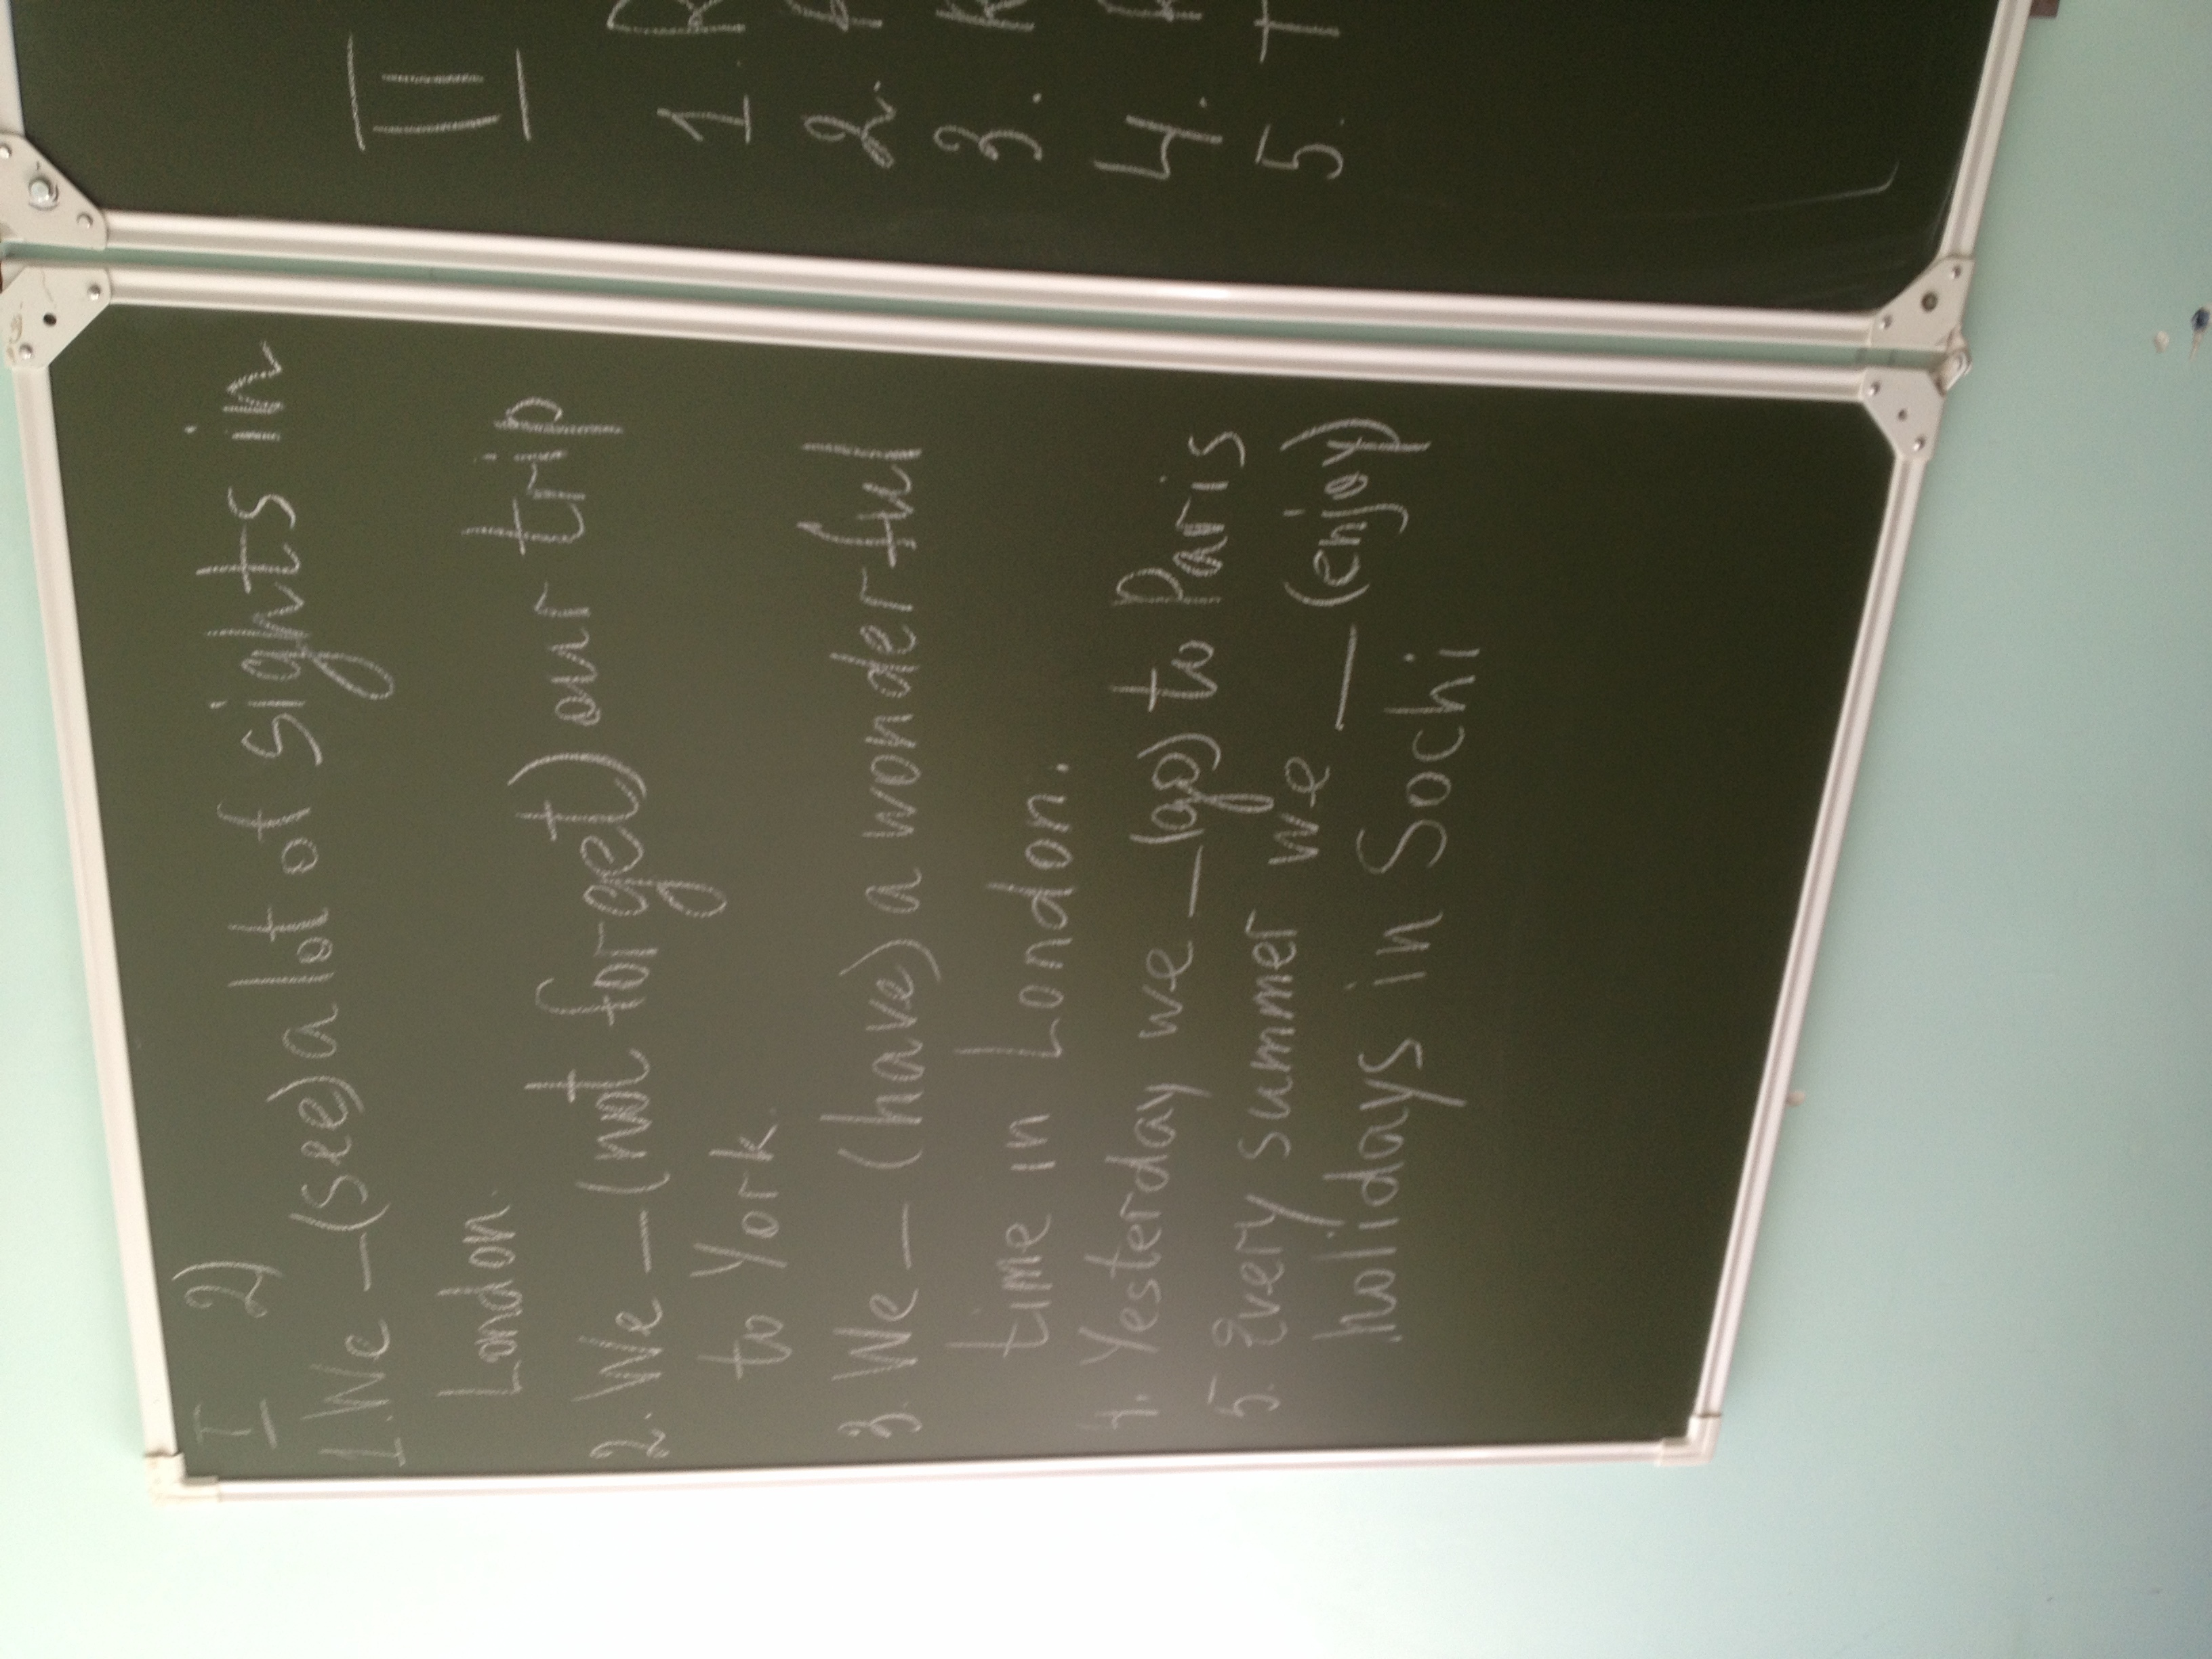 I 2)
1. We — (see) a lot of sights in
London.
2. We — (not forget) our trip
to York.
3. We — (have) a wonderful
time in London.
4. Yesterday we — (go) to Paris
5. Every summer we — (enjoy)
holidays in Sochi
II
1.
2.
3.
4.
5.